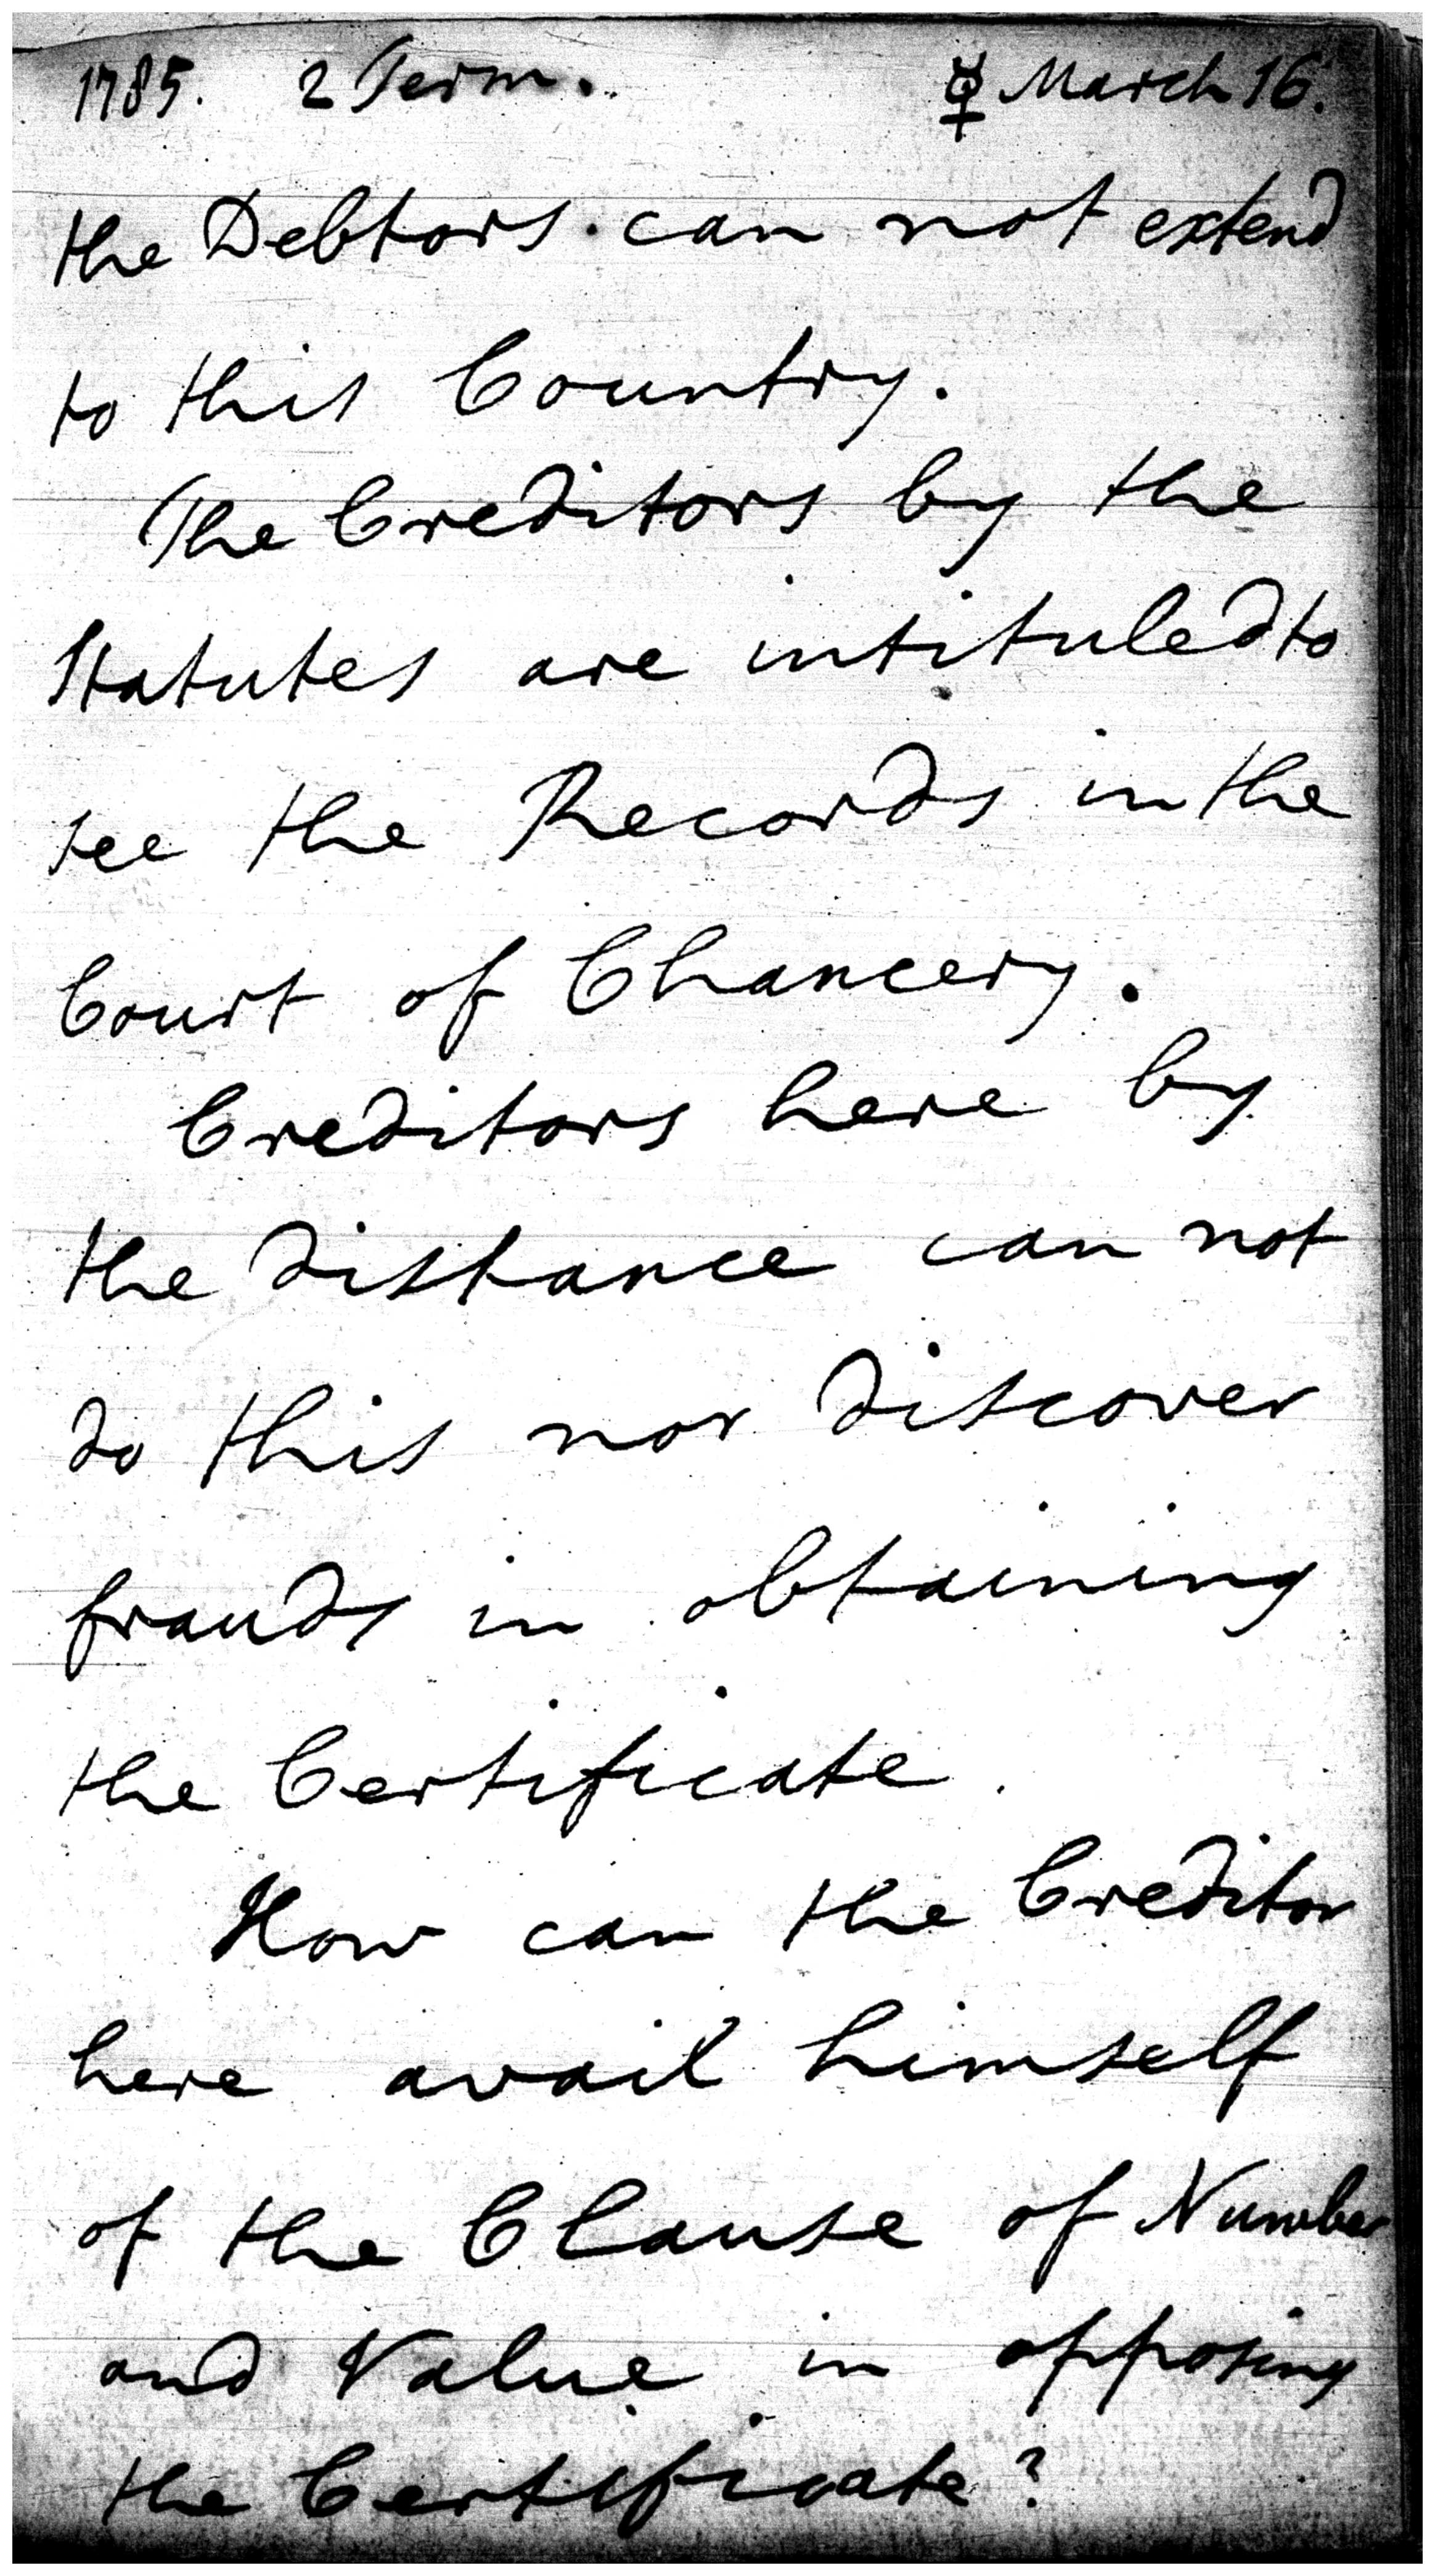 1785. 2 Term. ☿ March 16.
the Debtors can not extend
to this Country.
The Creditors by the
Statutes are intituled to
see the Records in the
Court of Chancery.
Creditors here by
the distance can not
do this nor discover
frauds in obtaining
the Certificate.
How can the Creditor
here avail himself
of the Clause of Number
and Value in opposing
the Certificate?